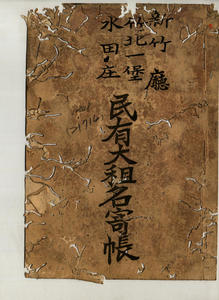 新竹廳
竹北一堡
水田庄
民有大租名寄帳